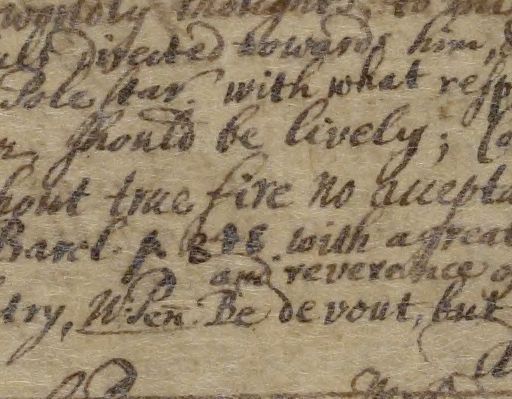 thoughts to
directed towards him,
Pole star. with what resp
should be lively;
hout true fire no accepta
p. with a great
and reverance o
try, W. Pen. Be devout, but